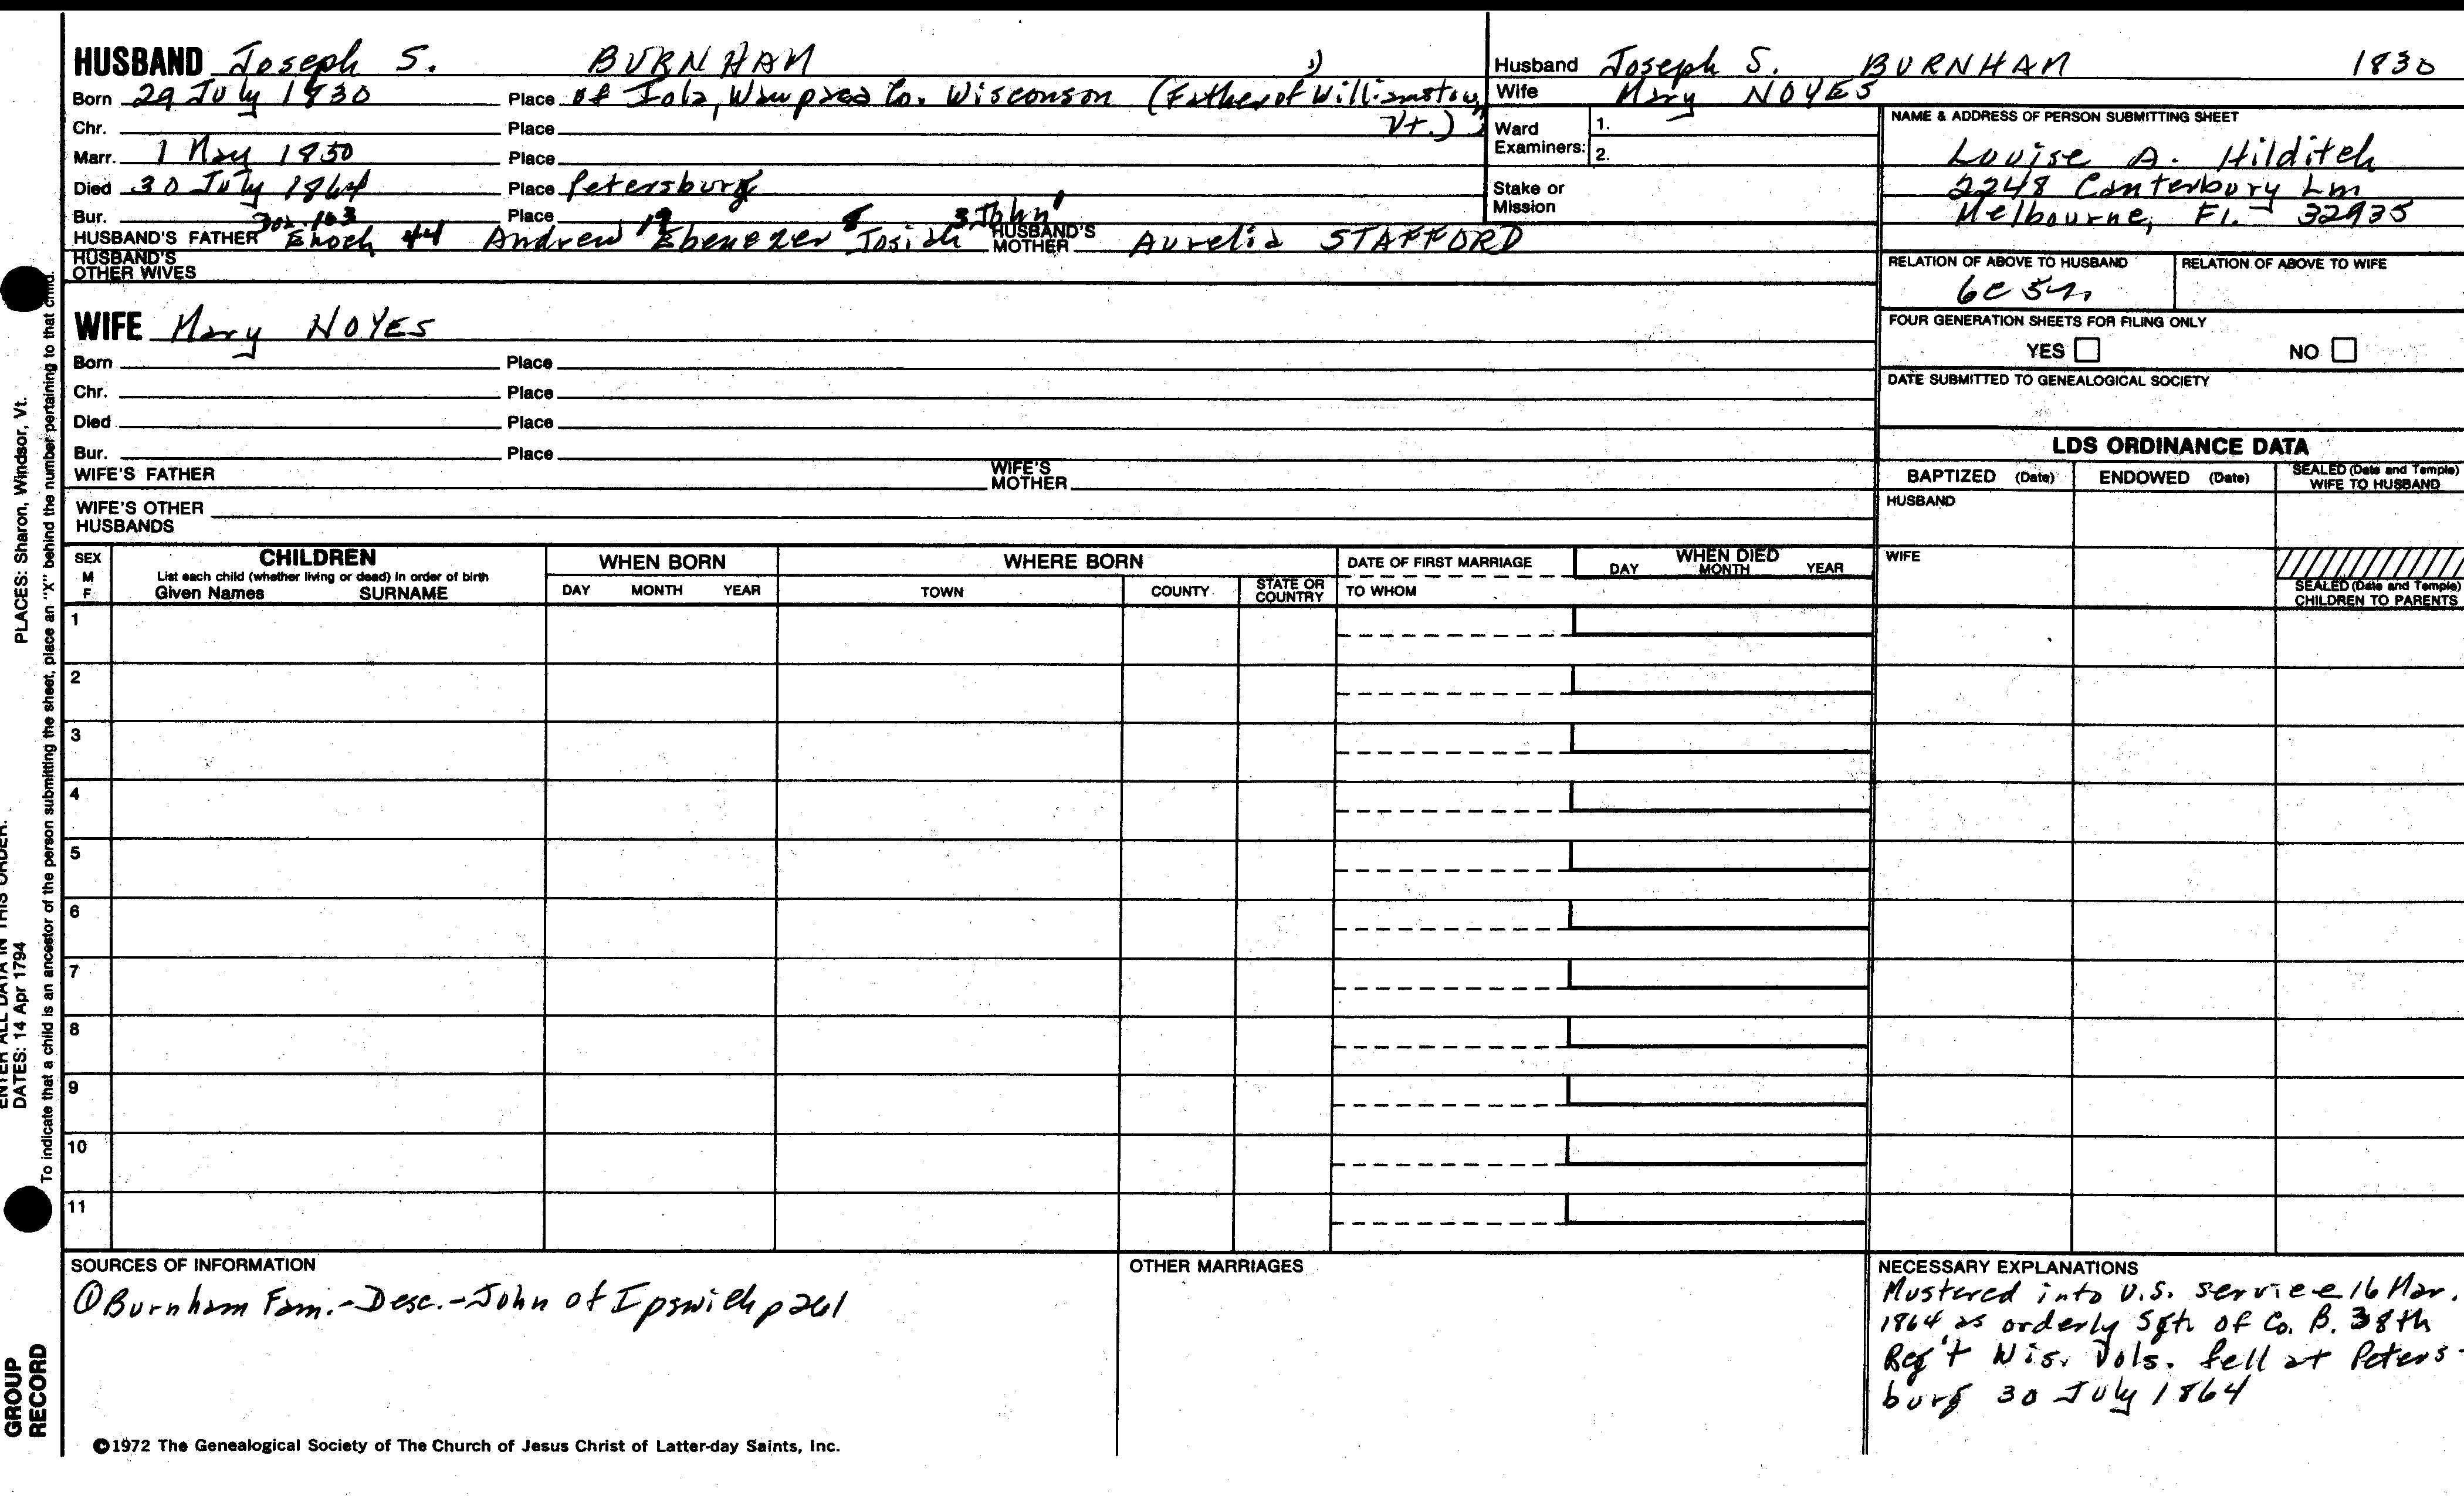 HUSBAND Joseph S. BURNHAM
Born 29 July 1830 Place of Iola, Waupaca Co. Wisconson (Father of Williamstown, Vt.)
Chr. Place
Marr. 1 May 1850 Place
Died 30 July 1864 Place Petersburg
Bur. Place
HUSBAND'S FATHER Enoch 44 Andrew 19 Ebenezer 8 Josiah 3 John 1 HUSBAND'S MOTHER Aurelia STAFFORD
HUSBAND'S OTHER WIVES
WIFE Mary NOYES
Born Place
Chr. Place
Died Place
Bur. Place
WIFE'S FATHER WIFE'S MOTHER
WIFE'S OTHER HUSBANDS
Husband Joseph S. BURNHAM 1830
Wife Mary NOYES
Ward Examiners: 1.
2.
Stake or Mission
NAME & ADDRESS OF PERSON SUBMITTING SHEET
Louise A. Hilditch
2248 Canterbury Ln
Melbourne, Fl. 32935
RELATION OF ABOVE TO HUSBAND RELATION OF ABOVE TO WIFE
6C 5r
FOUR GENERATION SHEETS FOR FILING ONLY
YES NO
DATE SUBMITTED TO GENEALOGICAL SOCIETY
LDS ORDINANCE DATA
BAPTIZED (Date) ENDOWED (Date) SEALED (Date and Temple) WIFE TO HUSBAND
HUSBAND
WIFE
SEALED (Date and Temple) CHILDREN TO PARENTS
SEX M F
CHILDREN
List each child (whether living or dead) in order of birth
Given Names SURNAME
WHEN BORN
DAY MONTH YEAR
WHERE BORN
TOWN COUNTY STATE OR COUNTRY
DATE OF FIRST MARRIAGE
TO WHOM
WHEN DIED
DAY MONTH YEAR
1
2
3
4
5
6
7
8
9
10
11
SOURCES OF INFORMATION
① Burnham Fam.-Desc.-John of Ipswich p 261
OTHER MARRIAGES
NECESSARY EXPLANATIONS
Mustered into U.S. service 16 Mar.
1864 as orderly Sgt. of Co. B. 38th
Reg't Wis. Vols. fell at Peters-
burg 30 July 1864
©1972 The Genealogical Society of The Church of Jesus Christ of Latter-day Saints, Inc.
PLACES: Sharon, Windsor, Vt.
To indicate that a child is an ancestor of the person submitting the sheet, place an "X" behind the number pertaining to that child.
ENTER ALL DATA IN THIS ORDER:
DATES: 14 Apr 1794
GROUP
RECORD